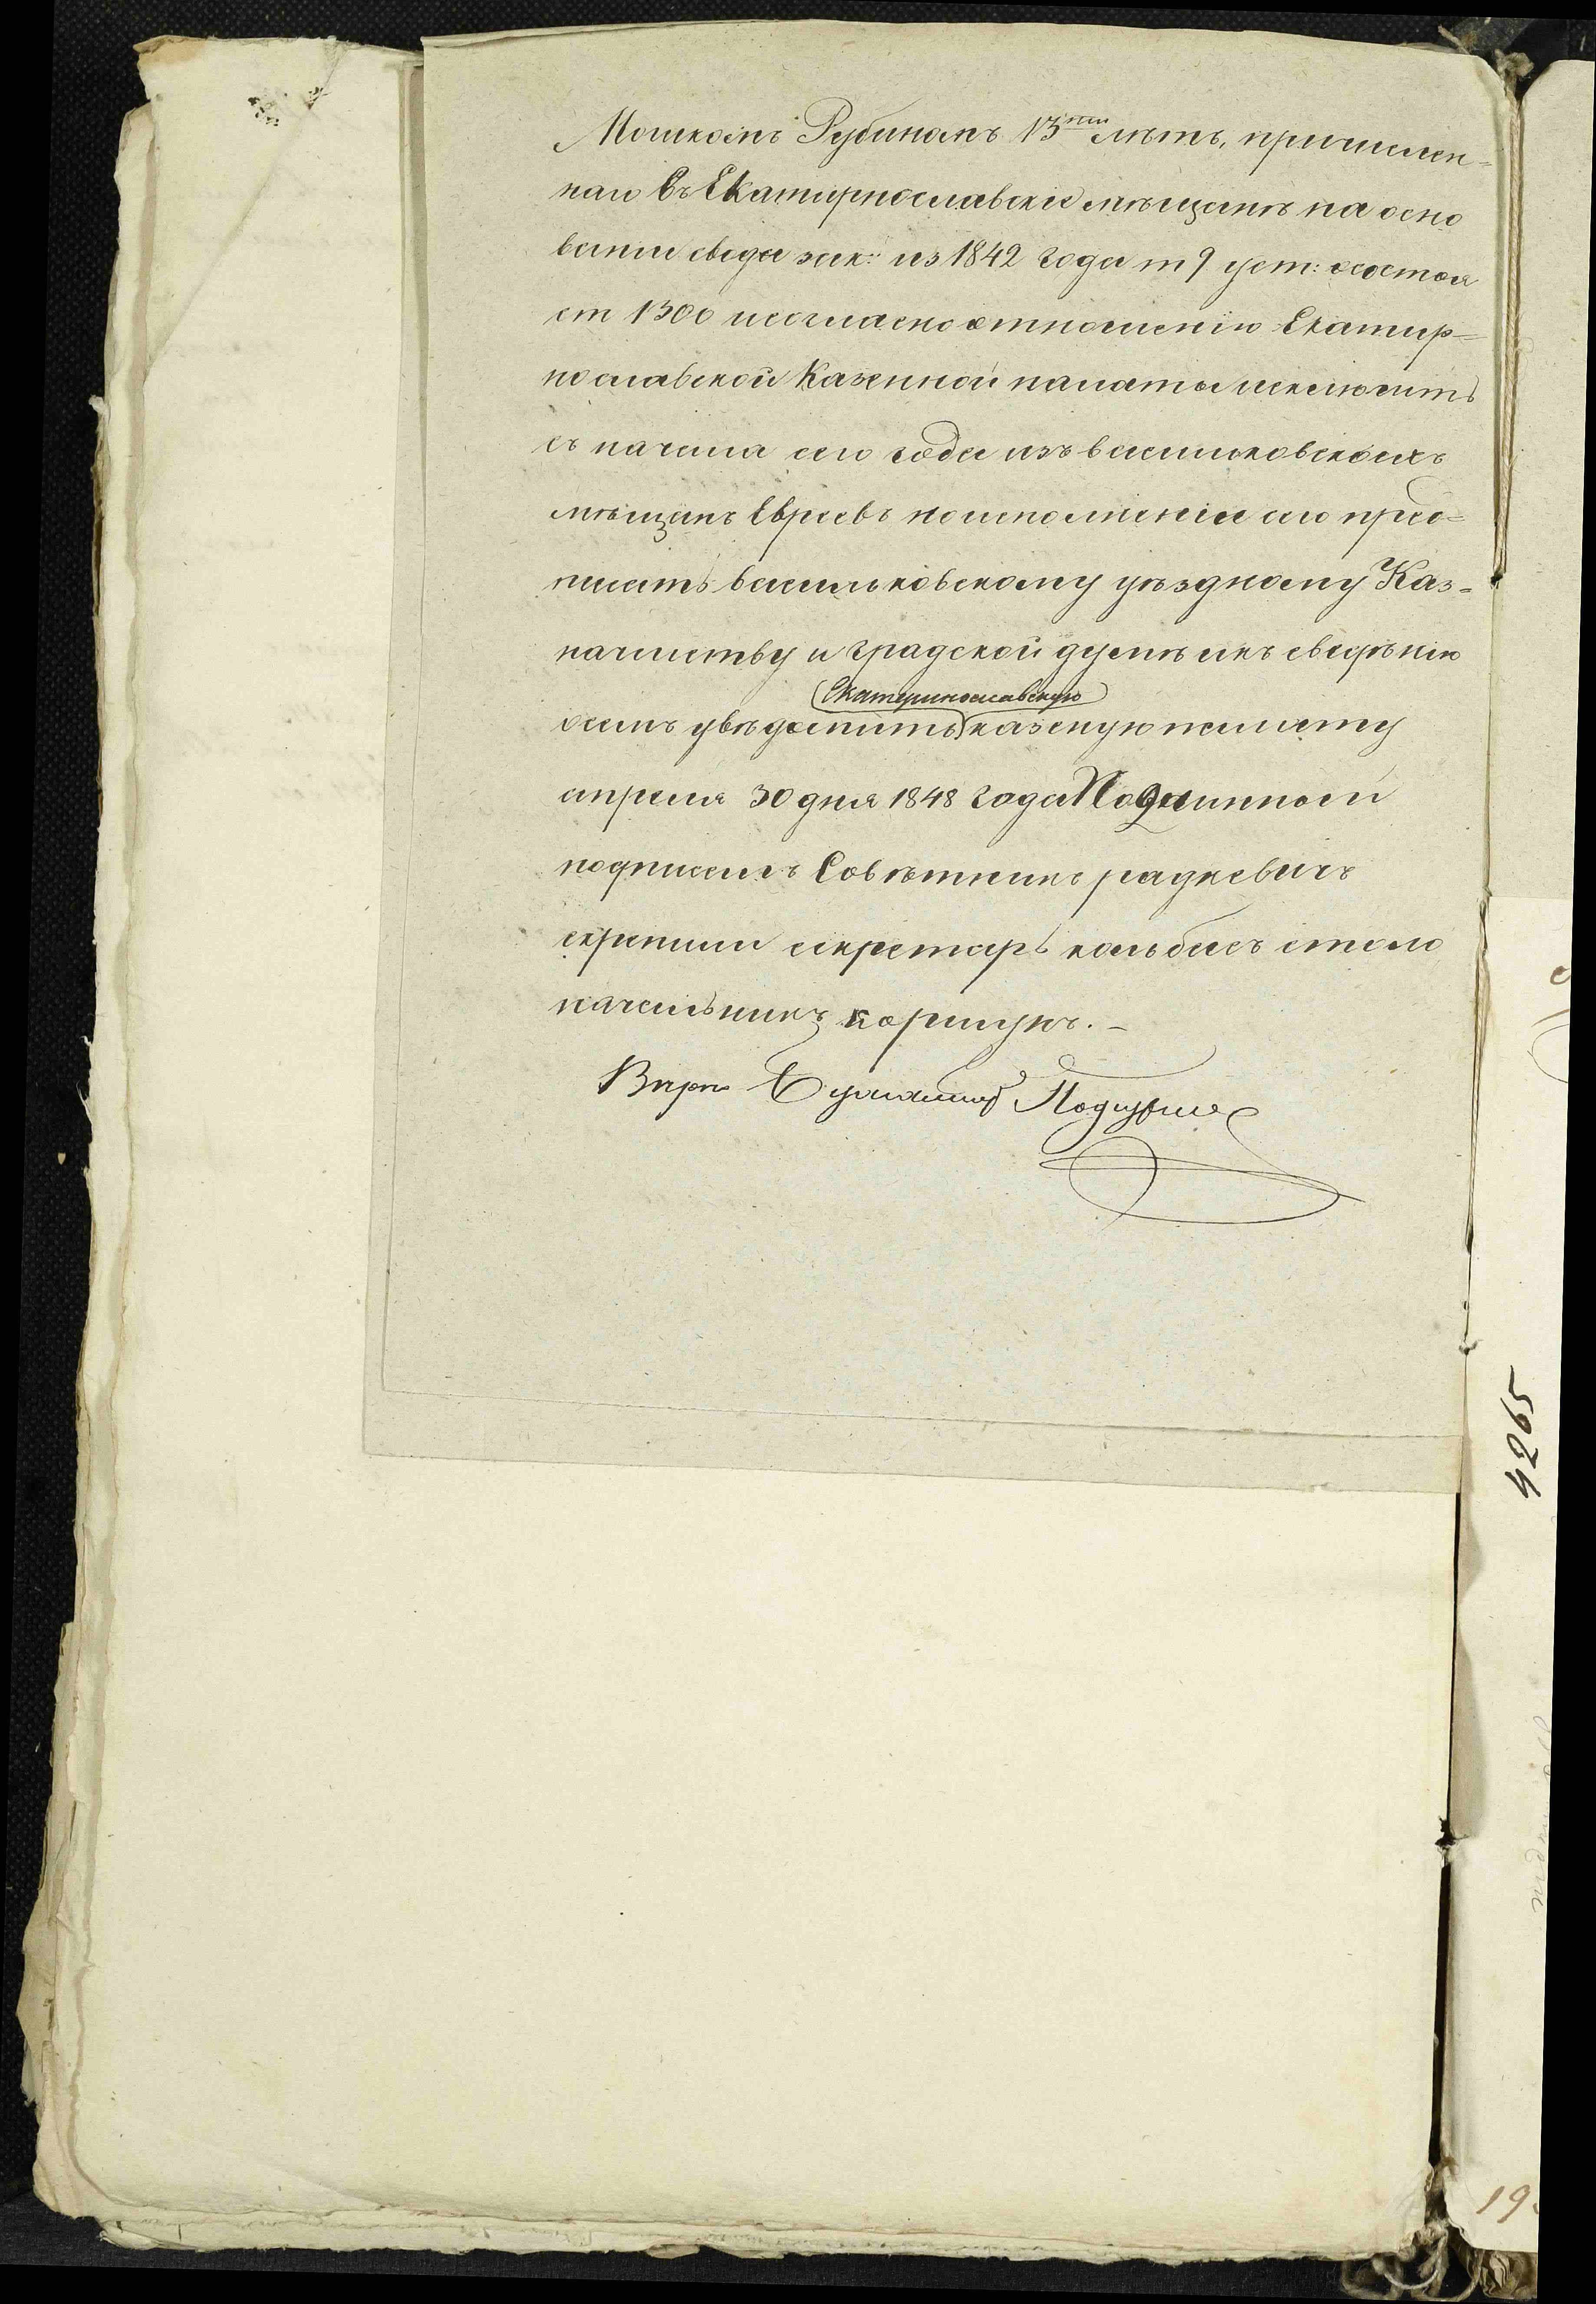 Мошкомъ Рубиномъ 13ти лѣтъ, причислен=
наго Въ Екатирнославскіе мѣщанъ на осно
ваніи свода зак: из 1842 года т 9 уст: осостоя
ст 1300 исогласно отношенію Екатир=
нославской Казенной палаты исключить
съ начала сего года изъ васильковскихъ
мѣщанъ Евреевъ поисполненіи сего пред=
писать васильковскому уѣздному Каз=
начиству и градской думѣ икъ сведѣнію
Екатеринославскую
осемъ увѣдомить казеную палату
апреля 30 дня 1848 года Подлинной
подписалъ Совѣтникъ радкевичъ
скрепили секретарь кольбасъ столо
начальникъ коршукъ. –
Вѣрно
4265
19